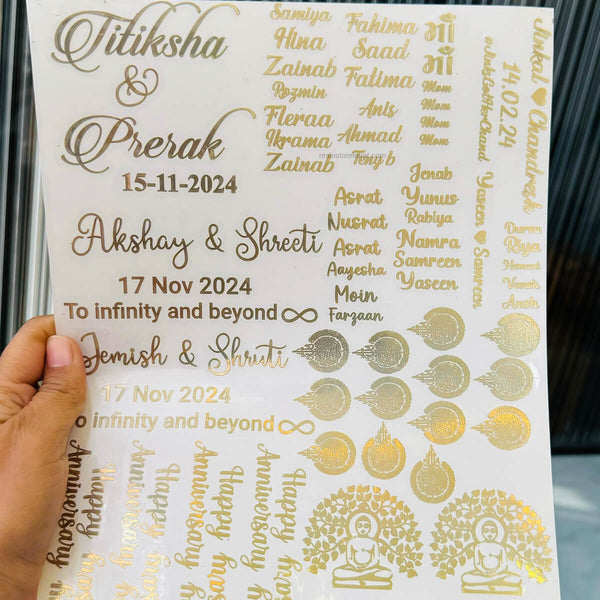 Titiksha
&
Prerak
15-11-2024
Akshay & Shreeti
17 Nov 2024
To infinity and beyond
Jemish & Shruti
17 Nov 2024
To infinity and beyond
Happy
Anniversary
Happy
Anniversary
Happy
Anniversary
Happy
Happy
Samiya
Hina
Zainab
Rozmin
Fleraa
Ikrama
Zainab
Fahima
Saad
Fatima
Anis
Ahmad
Asrat
Nusrat
Asrat
Aayesha
Moin
Farzaan
माँ
माँ
Mom
Mom
Mom
Mom
Jenab
Yunus
Rabiya
Namra
Samreen
Yaseen
14.02.24
Yaseen ♥ Samreen
Riya